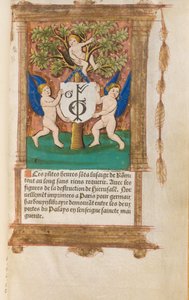 Les p̄ntes heures sōt a lusaige de Rōme
tout au long sans riens requerir. Auec les
figures de la destruction de Hierusalē. Nou
uellemēt imprimees a Paris pour germain
hardouyn libraire demourāt entre les deux
portes du Palays a lenseigne saincte mar
guerite.